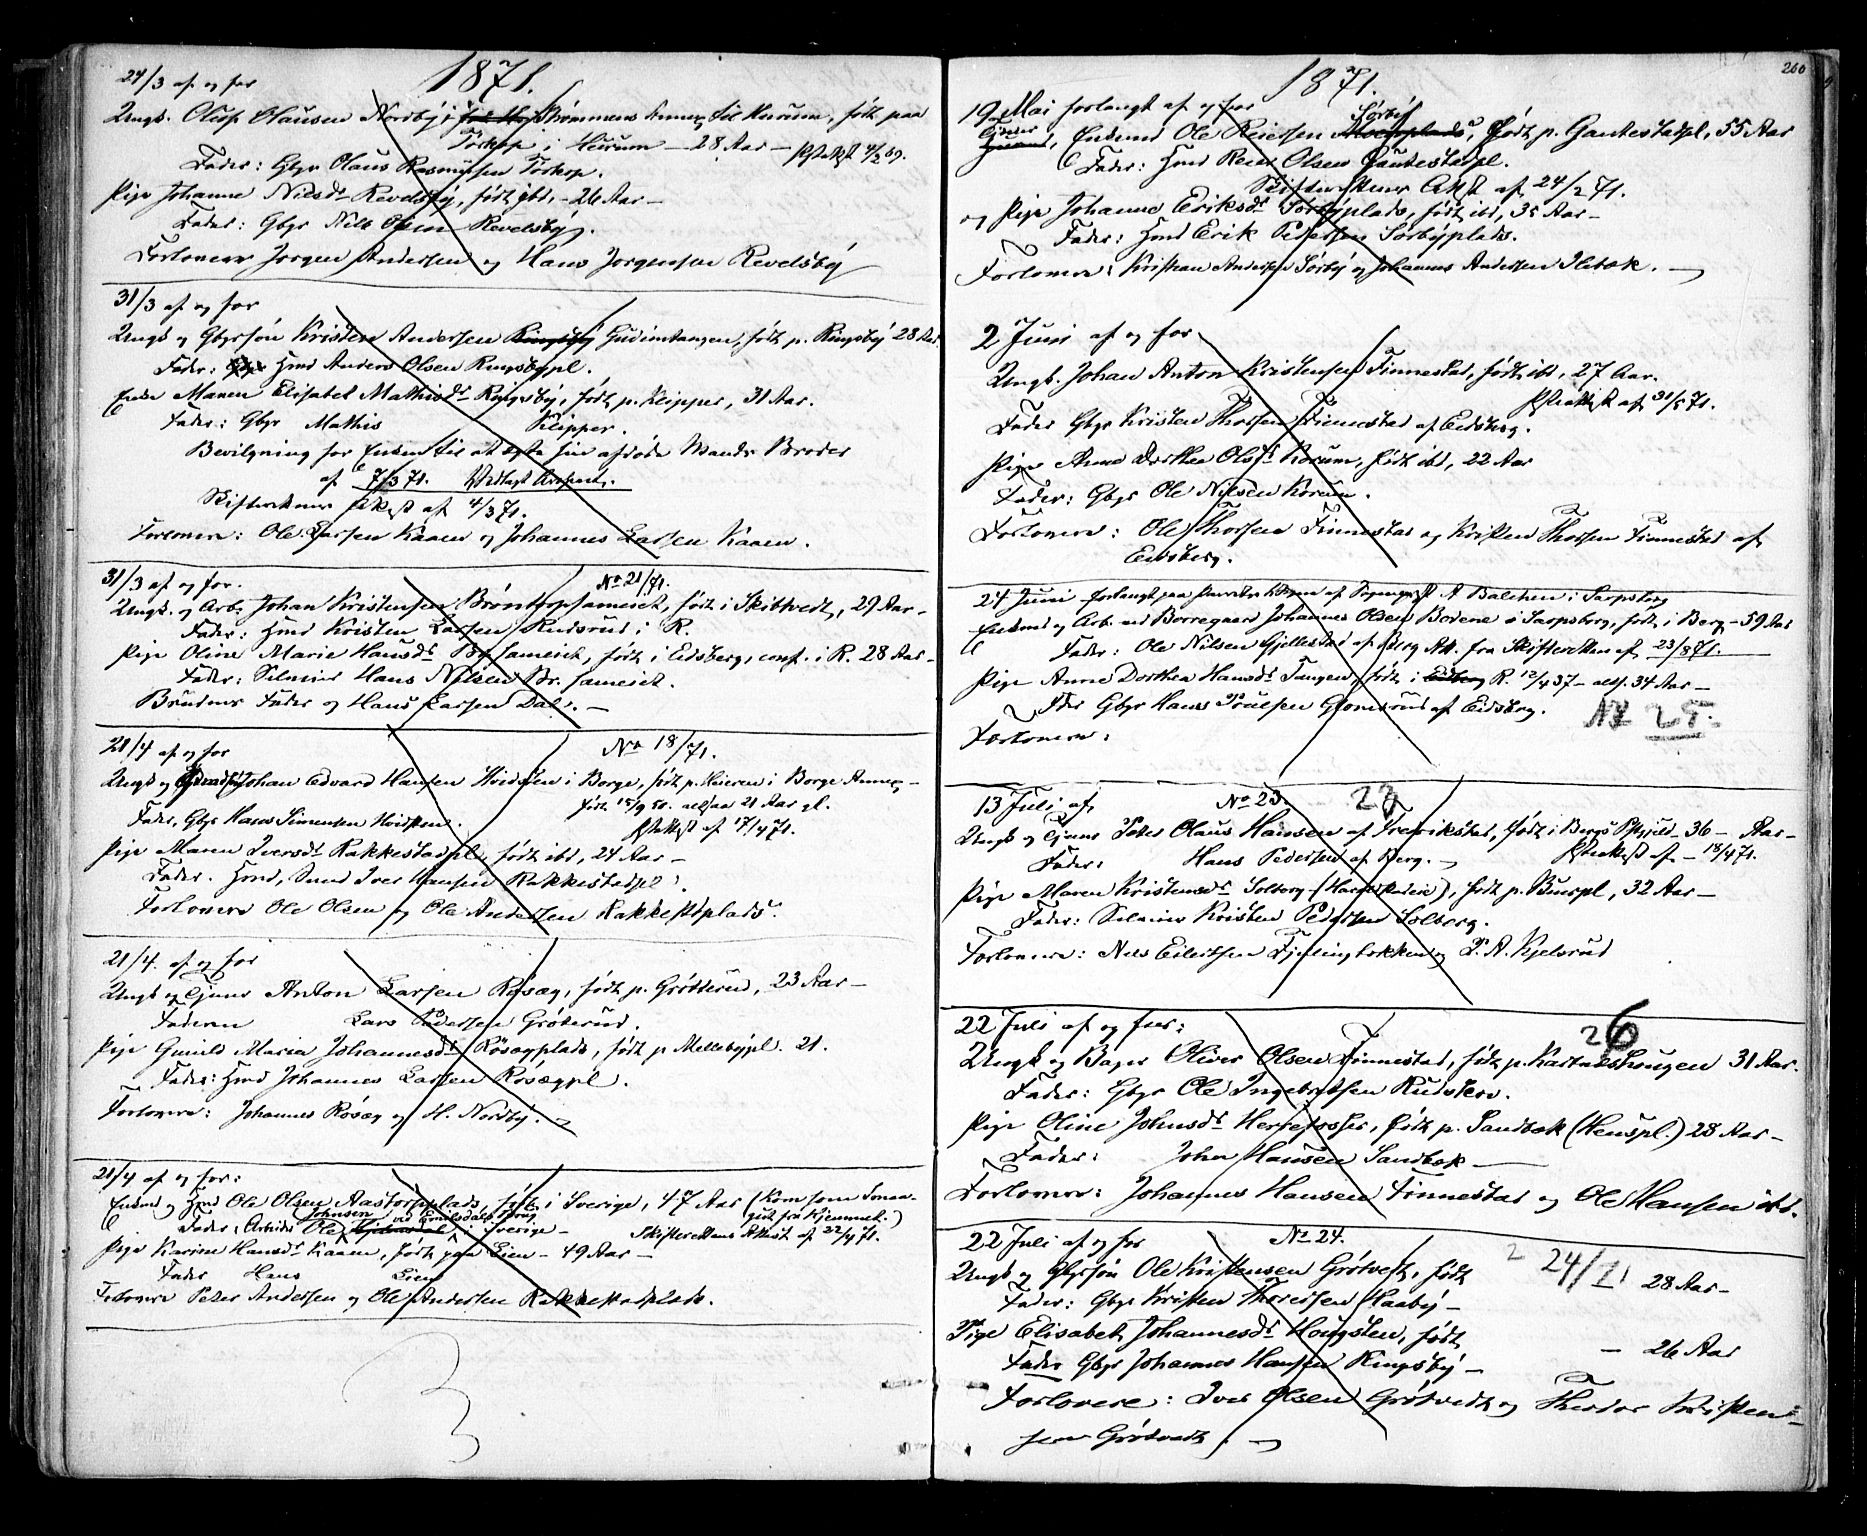 1871.
24/3 af og for
Ungk. Oluf Olausen Nordby i Strømmens Annex til Hurum, født paa
Torkop i Hurum – 28 Aar –
Fader: Gbr Olaus Rasmussen Torkop.
Pige Johanne Nilsdr Revelsby, født ibd, – 26 Aar –
Fader: Gbr Nils Olsen Revelsby.
Forlovere Jørgen Andersen og Hans Jørgensen Revelsby
31/3 af og for
Ungk og Gbrsøn Kristen Andersen Ringsby Gudimtangen, født p. Ringsby 28 Aar
Fader: Hmd Anders Olsen Ringsbypl.
Enke Maren Elisabet Mathisdr Ringsby, født p. Klipper, 31 Aar.
Fader: Gbr Mathis Klipper.
Bevilgning for Enken til at ægte sin afdøde Mands Broder
af 7/3 71.
Skifterettens Attest af 4/3 71.
Forlovere: Ole Larsen Kaaen og Johannes Larsen Kaaen.
31/3 af og for. No 21/71.
Ungk. og Arb. Johan Kristensen Brøntorpsameiet, født i Skibtvedt, 29 Aar –
Fader: Hmd Kristen Larsen Rudsrud i R.
Pige Oline Marie Hansdr Br. sameiet, født i Eidsberg, conf. i R. 28 Aar –
Fader: Selveier Hans Nilsen Br. sameiet.
Brudens Fader og Hans Larsen Dal. –
21/4 af og for No 18/71.
Ungk og Johan Edvard Hansen Hvidsten i Borge, født p. Heieren i Borge Annex –
født 15/9 50. altsaa 21 Aar gl.
Fader, Gbr Hans Simensen Hvidsten. Attest af 17/4 71.
Pige Maren Iversdr Rakkestadpl, født ibd, 24 Aar –
Fader. Hmd, Smed Iver Hansen Rakkestadpl.
Forlovere Ole Olsen og Ole Andersen Rakkestdplads.
21/4. af og for
Ungk og Tjener Anton Larsen Røsæg, født p. Grøtterud, 23 Aar –
Faderen Lars Pedersen Grøterud.
Pige Gunild Maria Johannesdr Røsægplads, født p Mellebypl. 21.
Fader: Hmd Johannes Larsen Røsægpl.
Forlovere: Johannes Røsæg og H. Nordby.
21/4 af og for:
Enkmd og Hmd Ole Olsen Aastorpplads, født i Sverige, 47 Aar (Kom som Smaa-
gut fra Hjemmet.)
Fader, Arbeider Ole Johnsen i Sverige – Skifterettens Attest af 22/4 71.
Pige Karine Hansdr Kaaen, født paa Lien – 49 Aar –
Fader Hans Lien
Forlovere Peter Andersen og Ole Andersen Rakkestadplads.
3
1871. 260
19 Mai forlangt af og for
Enkemd Ole Reiersen Sørby, født p. Gautestadpl, 55 Aar
Fader: Hmd Reier Olsen Gautestadpl.
Skifterettens Attst af 24/2 71.
og Pige Johanne Eriksdr Sørbyplads, født ibd, 35 Aar –
Fader: Hmd Erik Pedersen Sørbyplads.
Forlovere: Kristian Andersen Sørby og Johannes Andersen Ilebæk.
2 Juni af og for
Ungk. Johan Anton Kristensen Finnestad, født ibd, 27 Aar.
Attest af 31/5 71.
Fader Gbr Kristen Thorsen Finnestad af Eidsberg.
Pige Anne Dorthea Olsdr Korum, født ibd, 22 Aar
Fader: Gbr Ole Nilsen Korum.
Forlovere: Ole Thorsen Finnestad og Kristen Thorsen Finnestad af
Eidsberg.
24 Juni forlangt paa A Balchen i Sarpsborg
Enkmd og Arb. ved Borregaard Johannes Olsen Bodene i Sarpsborg, født i Berg – 59 Aar
Fader: Ole Nilsen Gjellestad af Berg Att. fra Skifteretten af 23/8 71.
Pige Anne Dorthea Hansdr Tangen, født i R. 12/4 37 – alts. 34 Aar –
Fder Gbr Hans Poulsen Glomsrud af Eidsberg. No 25.
Forlovere:
13 Juli af No 23. 23
Ungk og Tjener Peter Olaus Hansen af Fredrikstad, født i Bergs Pstgjeld – 36 – Aar –
Fader: Hans Pedersen af Berg. – Attest af – 18/4 71.
Pige Maren Kristensdr Solberg (Harpskadeie), født p. Buerpl, 32 Aar –
Fader: Selveier Kristen Pedersen Solberg.
Forlovere: Nils Eilertsen og P. A. Kjelsrud
22 Juli af og for: 26
Ungk og Bager Oliver Olsen Finnestad, født p. Kastneshougen 31 Aar.
Fader: Gbr Ole Ingebretsen Rudsteen.
Pige Oline Johnsdr Herrefosser, født p. Sandbæk (Heuspl.) 28 Aar –
Fader: John Hansen Sandbæk –
Forlovere: Johannes Hansen Finnestad og Ole Hansen ibd.
22 Juli af og for No 24. 24/71
Ungk og Gbrsøn Ole Kristensen Grøtvedt, født 28 Aar –
Fader: Gbr Kristen Thoresen Haaby –
Pige Elisabet Johannesdr Hougsten, født – 26 Aar
Fader Gbr Johannes Hansen Ringsby –
Forlovere: Iver Olsen Grøtvedt og Theodor Kristen-
sen Grøtvedt. –